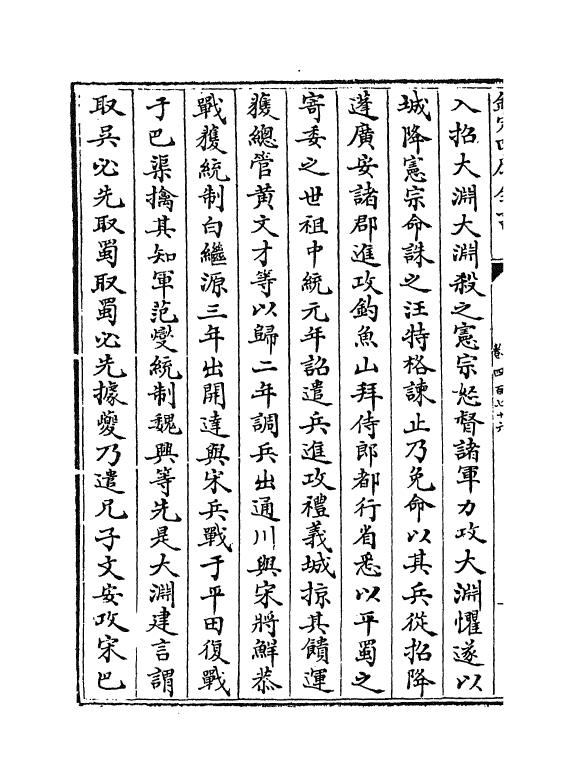 欽定四庫全書
卷四百七十六
入招大淵大淵殺之憲宗怒督諸軍力攻大淵懼遂以
城降憲宗命誅之汪特格諫止乃免命以其兵從招降
蓬廣安諸郡進攻釣魚山拜侍郎都行省悉以平蜀之
寄委之世祖中統元年詔遣兵進攻禮義城掠其饋運
獲總管黄文才等以歸二年調兵出通川與宋將鮮恭
戰獲統制白繼源三年出開達與宋兵戰于平田復戰
于巴渠擒其知軍范燮統制魏興等先是大淵建言謂
取吳必先取蜀取蜀必先據夔乃遣兄子文安攻宋巴